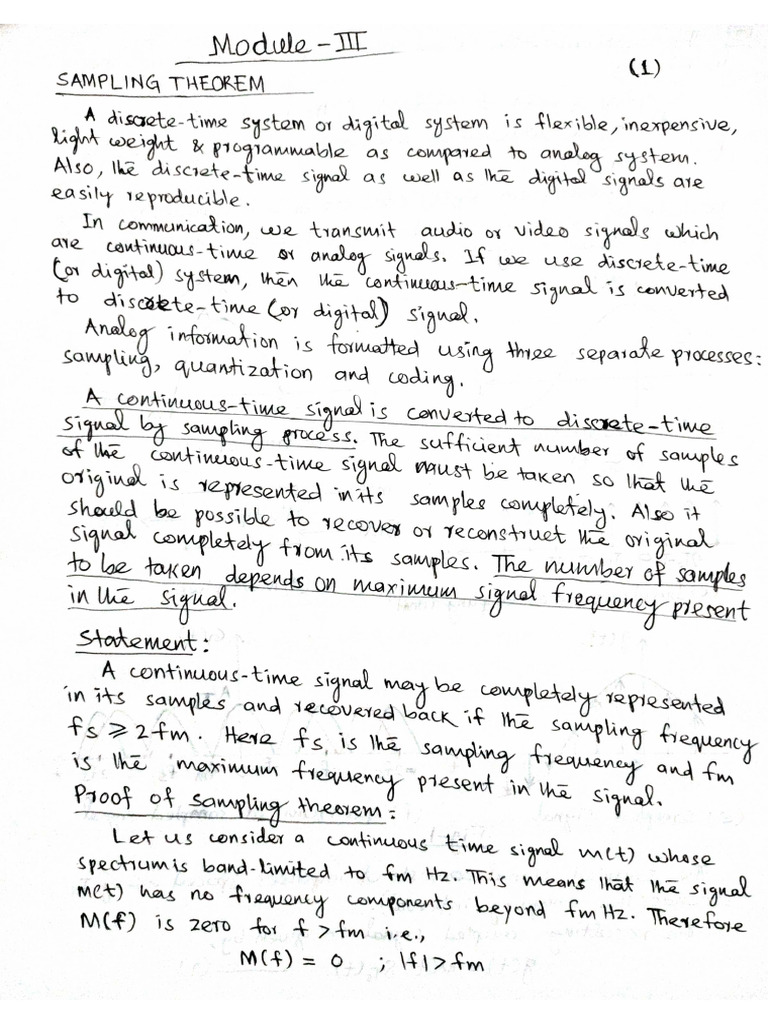 Module - III
(1)
SAMPLING THEOREM
A discrete-time system or digital system is flexible, inexpensive,
light weight & programmable as compared to analog system.
Also, the discrete-time signal as well as the digital signals are
easily reproducible.
In communication, we transmit audio or video signals which
are continuous-time or analog signals. If we use discrete-time
(or digital) system, then the continuous-time signal is converted
to discrete-time (or digital) signal.
Analog information is formatted using three separate processes:
sampling, quantization and coding.
A continuous-time signal is converted to discrete-time
signal by sampling process. The sufficient number of samples
of the continuous-time signal must be taken so that the
original is represented in its samples completely. Also it
should be possible to recover or reconstruct the original
signal completely from its samples. The number of samples
to be taken depends on maximum signal frequency present
in the signal.
Statement:
A continuous-time signal may be completely represented
in its samples and recovered back if the sampling frequency
fs ⩾ 2fm. Here fs is the sampling frequency and fm
is the maximum frequency present in the signal.
Proof of sampling theorem:
Let us consider a continuous time signal m(t) whose
spectrum is band-limited to fm Hz. This means that the signal
m(t) has no frequency components beyond fm Hz. Therefore
M(f) is zero for f > fm i.e.,
M(f) = 0 ; |f| > fm